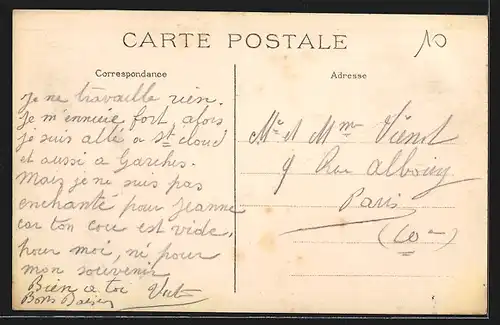 CARTE POSTALE
10
Correspondance
Adresse
je ne travaille rien.
je m'ennuie fort, alors
je suis allé a St cloud
et aussi a Garches.
Mais je ne suis pas
enchanté pour Jeanne
car ton cou est vide,
pour moi, ni pour
mon souvenir
Bien a toi
Bons Baisers
Mr et Mme Viénot
9 Rue Albouy
Paris
(10me)